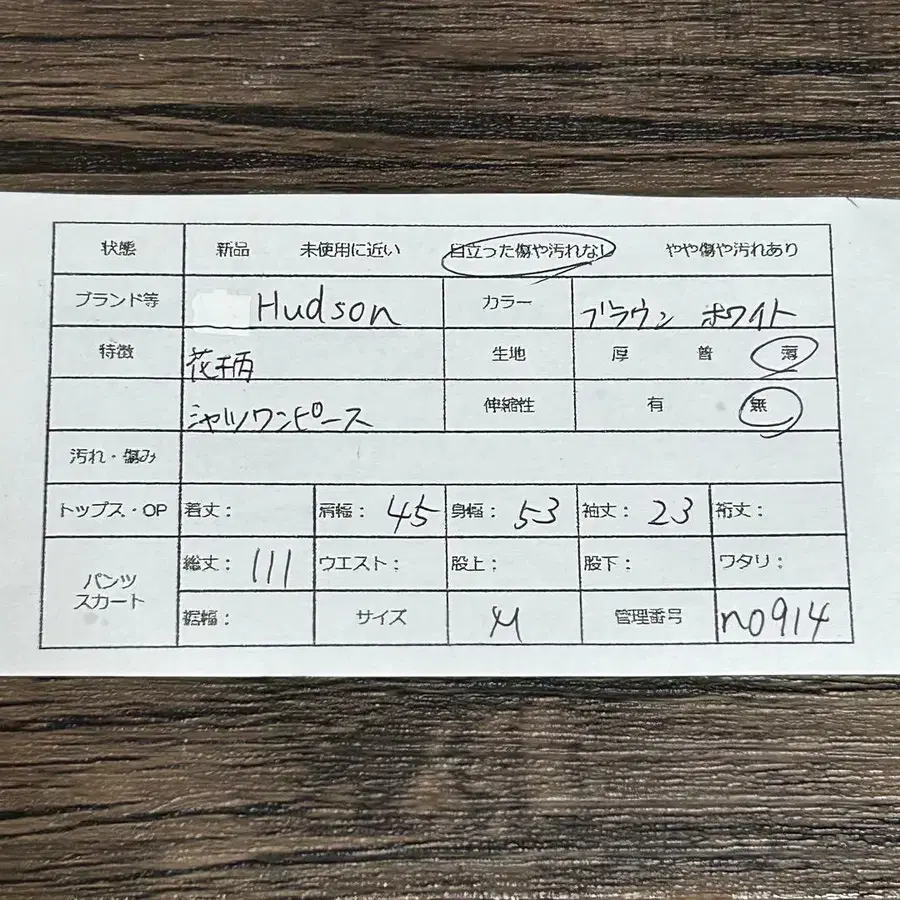 状態 新品 未使用に近い 目立った傷や汚れなし やや傷や汚れあり
ブランド等 Hudson カラー ブラウン ホワイト
特徴 花柄 生地 厚 普 薄
シャツワンピース 伸縮性 有 無
汚れ・傷み
トップス・OP 着丈: 肩幅: 45 身幅: 53 袖丈: 23 裄丈:
パンツ スカート 総丈: 111 ウエスト: 股上: 股下: ワタリ:
裾幅: サイズ M 管理番号 n0914